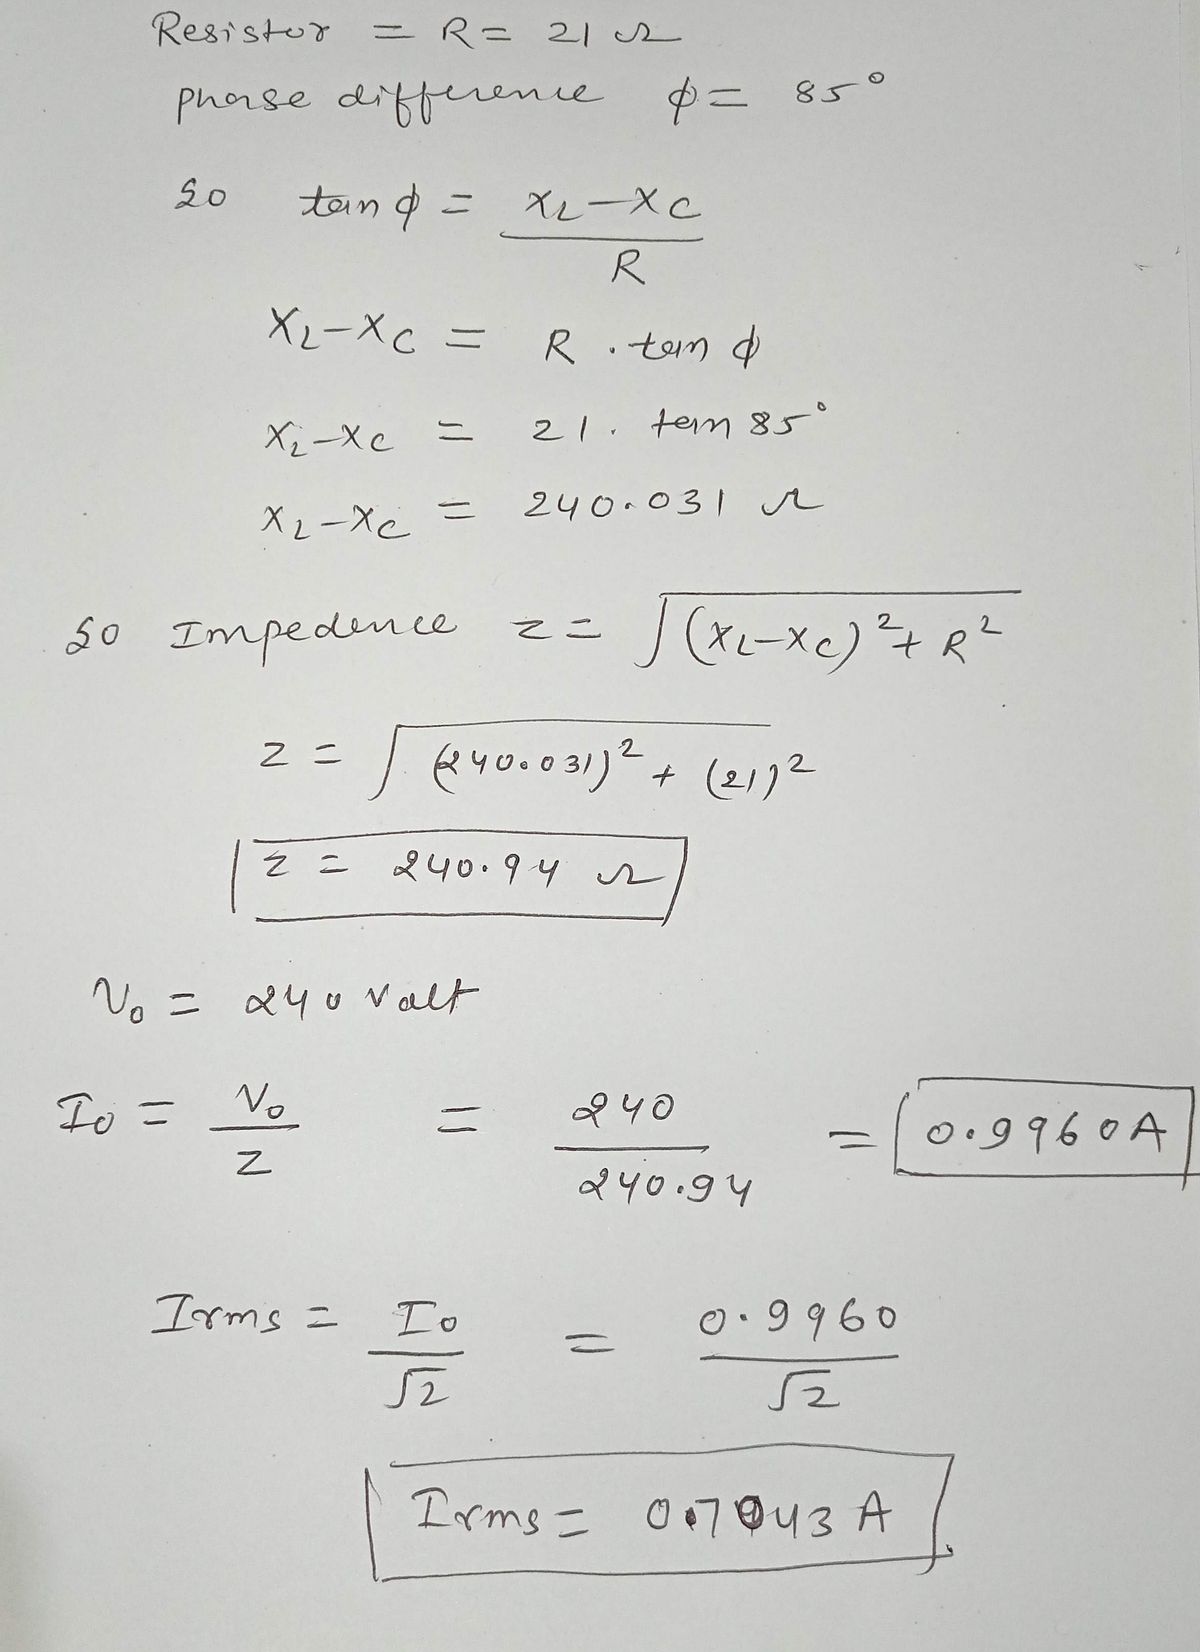 Resistor = R = 21 Ω
phase difference ϕ = 85°
So tan ϕ = X_L - X_C / R
X_L - X_C = R . tan ϕ
X_L - X_C = 21 . tan 85°
X_L - X_C = 240.031 Ω
So Impedence z = √(X_L - X_C)² + R²
z = √(240.031)² + (21)²
z = 240.94 Ω
V₀ = 240 Valt
I₀ = V₀ / Z = 240 / 240.94 = 0.9960 A
Irms = I₀ / √2 = 0.9960 / √2
Irms = 0.7043 A